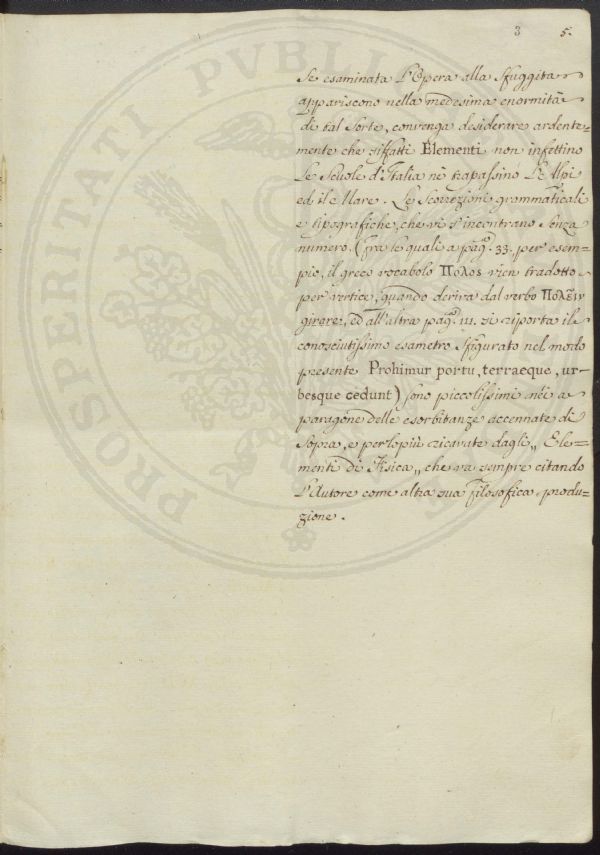 3 5.
Se esaminata l'Opera alla sfuggita
appariscono nella medesima enormità
di tal sorte, convenga desiderare ardente-
mente che siffatti Elementi non infettino
le Scuole d'Italia ne trapassino l'Alpi
ed il Mare. Le Scorrezioni grammaticali
e tipografiche, che vi s'incontrano senza
numero, (fra le quali a pag. 33. per esem-
pio, il greco vocabolo Πολος vien tradotto
per vertice, quando deriva dal verbo Πολεῖν
girare, ed all'altra pag. 111. si riporta il
conosciutissimo esametro sfigurato nel modo
presente Prohimur portu, terraeque, ur-
besque cedunt) sono piccolissimi nèi a
paragone delle esorbitanze accennate di
sopra, e perlopiù ricavate dagli „ Ele-
menti di Fisica „ che va sempre citando
l'Autore come altra sua filosofica produ-
zione.
PROSPERITATI PVBLI